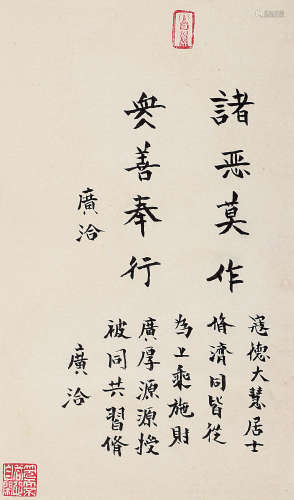 諸惡莫作
眾善奉行
廣洽
寇德大慧居士
脩濟同皆從
為上乘施財
廣厚源源授
被同共習脩
廣洽